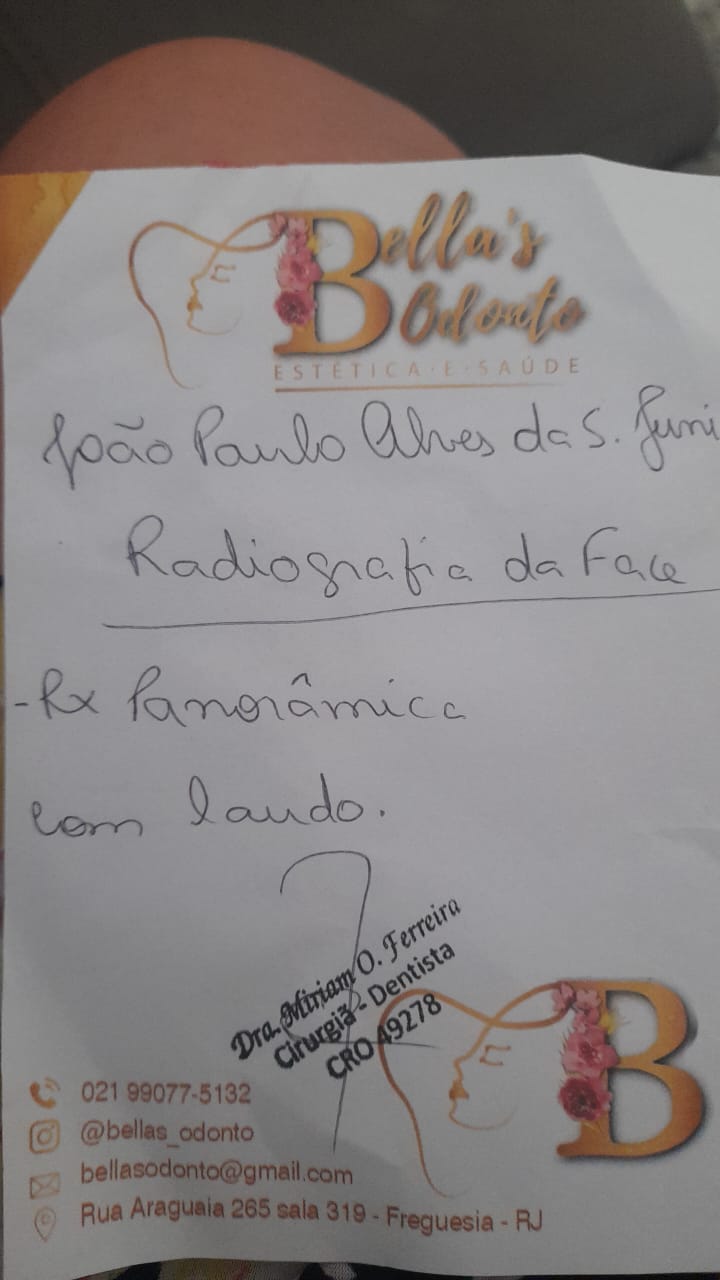 Bella's
Odonto
ESTÉTICA · E · SAÚDE
João Paulo Alves da S. Juni
Radiografia da Face
- Rx Panorâmica
com laudo.
Dra. Miriam O. Ferreira
Cirurgiã - Dentista
CRO 49278
B
021 99077-5132
@bellas_odonto
bellasodonto@gmail.com
Rua Araguaia 265 sala 319 - Freguesia - RJ